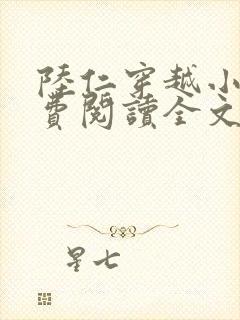 陸仁穿越小
費閱讀全文
星七